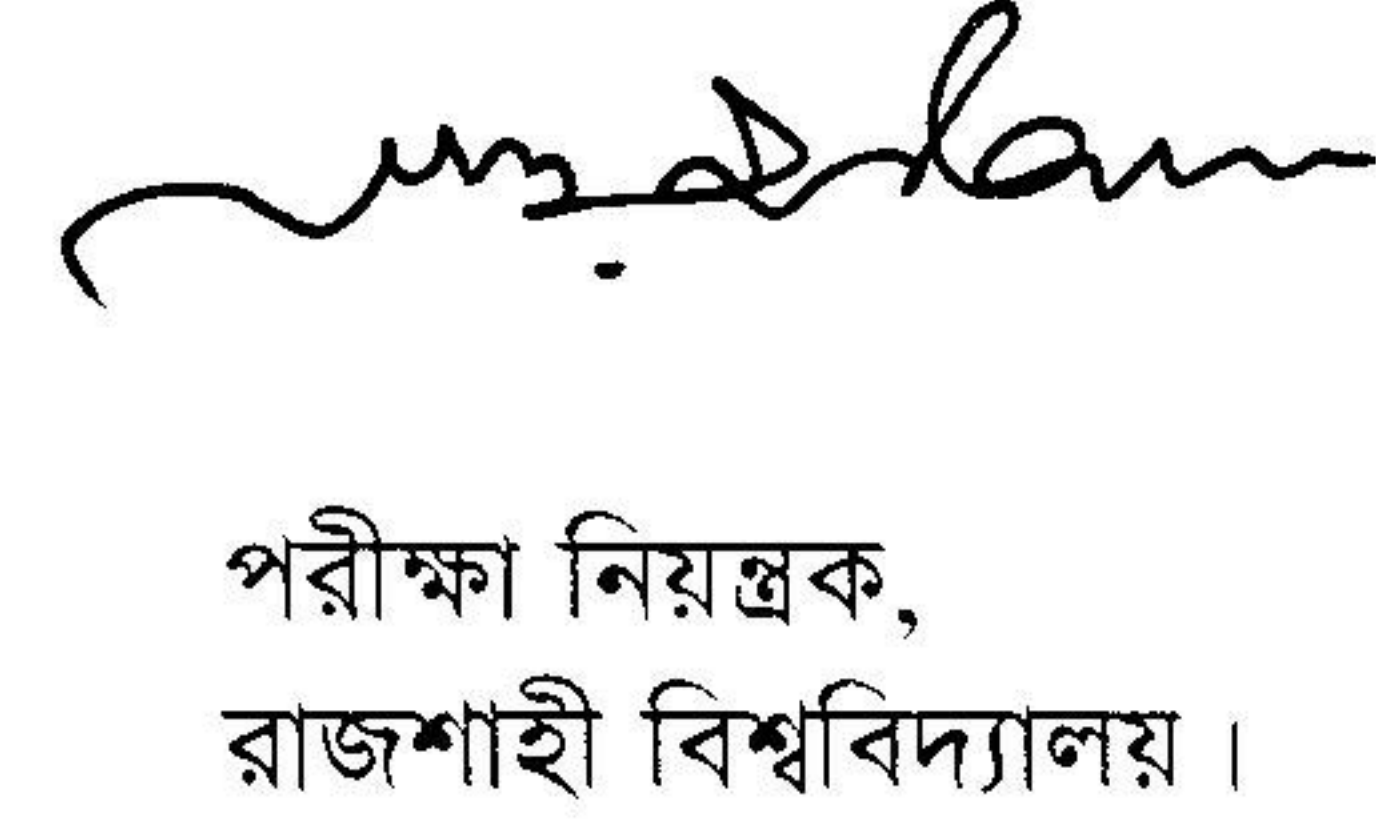 পরীক্ষা নিয়ন্ত্রক,
রাজশাহী বিশ্ববিদ্যালয় ।